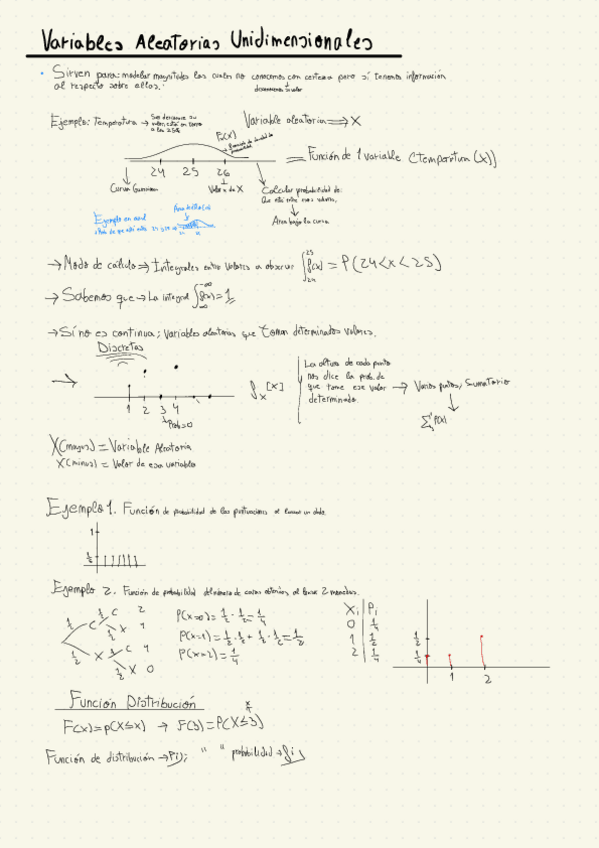 Variables Aleatorias Unidimensionales
• Sirven para: modelar magnitudes las cuales no conocemos con certeza pero sí tenemos información
al respecto sobre ellas.
Ejemplo: Temperatura →
Variable aleatoria ⇒ X
24 25 26
= Función de 1 variable (Temperatura (x))
Curva Gaussiana
Valor de X
Calcular probabilidad de:
Área bajo la curva
Ejemplo en azul
→ Modo de cálculo ⇒ Integrales entre valores a observar ∫ f(x) = P(24<x<25)
→ Sabemos que → La integral ∫ f(x) = 1
→ Sí no es continua; Variables aleatorias que toman determinados valores.
Discretas
La altura de cada punto
nos dice la prob. de
que tome ese valor → Varios puntos, Sumatorio
determinado.
1 2 3 4
Prob=0
∑ P(x)
X(mayus) = Variable Aleatoria
x(minus) = Valor de esa variable
Ejemplo 1. Función de probabilidad de las puntuaciones al lanzar un dado.
1
Ejemplo 2. Función de probabilidad del número de caras obtenidas al lanzar 2 monedas.
P(x=0) = 1/2 · 1/2 = 1/4
P(x=1) = 1/2 · 1/2 + 1/2 · 1/2 = 1/2
P(x=2) = 1/4
Xi Pi
0 1/4
1 1/2
2 1/4
1/2
1/4
1 2
Función Distribución
F(x) = p(X≤x) → F(3) = P(X≤3)
Función de distribución → Pi); " " probabilidad → fi